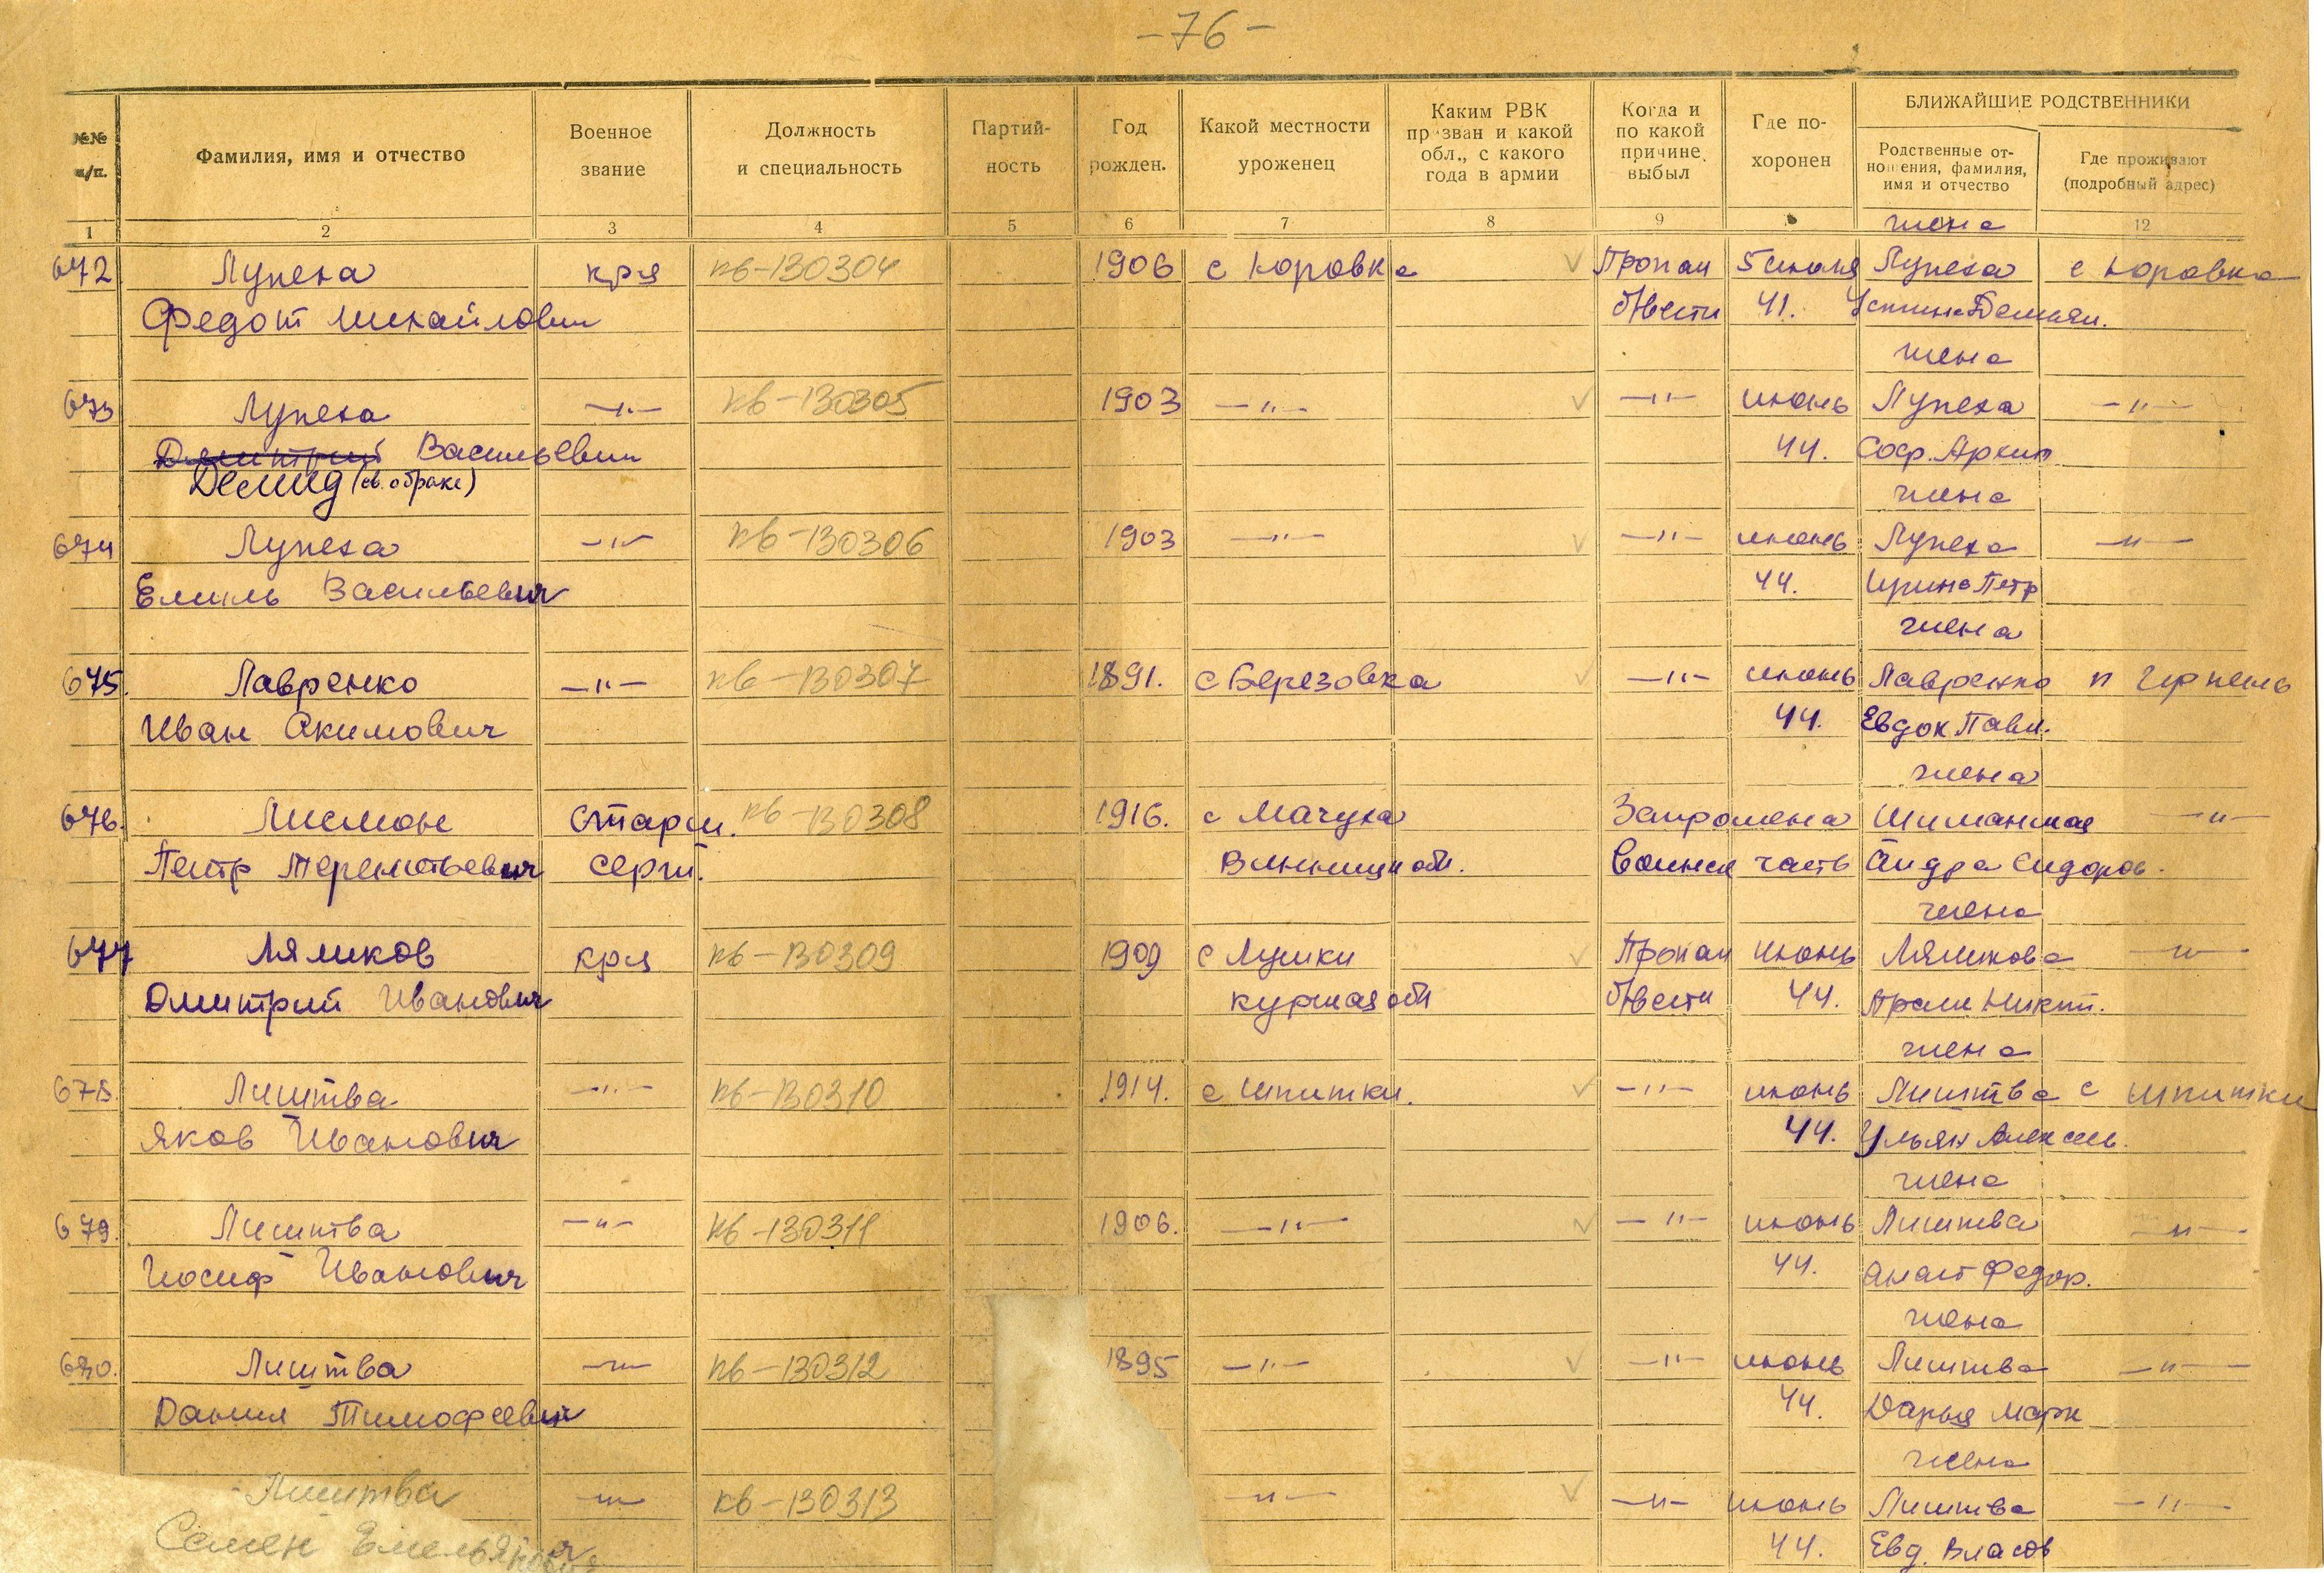 -76-
БЛИЖАЙШИЕ РОДСТВЕННИКИ
№№ п/п. Фамилия, имя и отчество Военное звание Должность и специальность Партий-ность Год рожден. Какой местности уроженец Каким РВК призван и какой обл., с какого года в армии Когда и по какой причине выбыл Где по-хоронен Родственные от-ношения, фамилия, имя и отчество Где проживают (подробный адрес)
1 2 3 4 5 6 7 8 9 жена 12
672 Лупеха кр-я кв-130304 1906 с Коровка Пропал 5 июня Лупеха с Коровка
Федот Михайлович б/вести 41. Демьян.
жена
673 Лупеха -"- кв-130305 1903 -"- -"- июнь Лупеха -"-
Димитрий Васильевич 44. Соф. Архип
Демид (св. о браке) жена
674 Лупеха -"- кв-130306 1903 -"- -"- июнь Лупеха -"-
Емиль Васильевич 44. Ирина Петр
жена
675. Лавренко -"- кв-130307 1891. с Березовка -"- июнь Лавренко п
Иван Акимович 44. Евдок Павл.
жена
676. Лисмон Старш. кв-130308 1916. с Мачуха -"-
Петр Терентьевич Серж. Винниц обл. Воинск часть Сидоров.
жена
677 Лямков кр-я кв-130309 1909 с Лушки Пропал июнь Лямкова -"-
Дмитрий Иванович Курская обл б/вести 44. Никит.
жена
678. Лиштва -"- кв-130310 1914. с Шпитки. -"- июнь Лиштва с Шпитки
Яков Иванович 44. Ульян Алексеев.
жена
679. Лиштва -"- кв-130311 1906. -"- -"- июнь Лиштва -"-
Иосиф Иванович 44. Анаст Федор.
жена
680. Лиштва -"- кв-130312 1895 -"- -"- июнь Лиштва -"-
Данил Тимофеевич 44. Дарья Марк
жена
Лиштва -"- кв-130313 -"- -"- июнь Лиштва -"-
Семен Емельянович 44. Евд. Власов